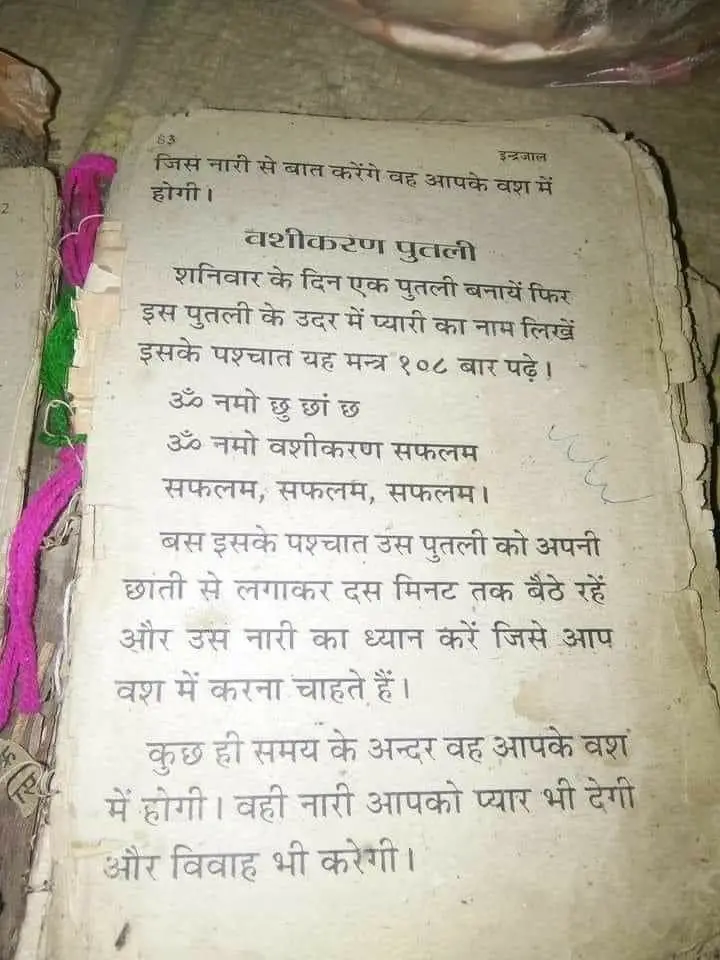 83
इन्द्रजाल
जिस नारी से बात करेंगे वह आपके वश में
होगी।
वशीकरण पुतली
शनिवार के दिन एक पुतली बनायें फिर
इस पुतली के उदर में प्यारी का नाम लिखें
इसके पश्चात यह मन्त्र १०८ बार पढ़े।
ॐ नमो छु छां छ
ॐ नमो वशीकरण सफलम
सफलम, सफलम, सफलम।
बस इसके पश्चात उस पुतली को अपनी
छांती से लगाकर दस मिनट तक बैठे रहें
और उस नारी का ध्यान करें जिसे आप
वश में करना चाहते हैं।
कुछ ही समय के अन्दर वह आपके वश
में होगी। वही नारी आपको प्यार भी देगी
और विवाह भी करेगी।